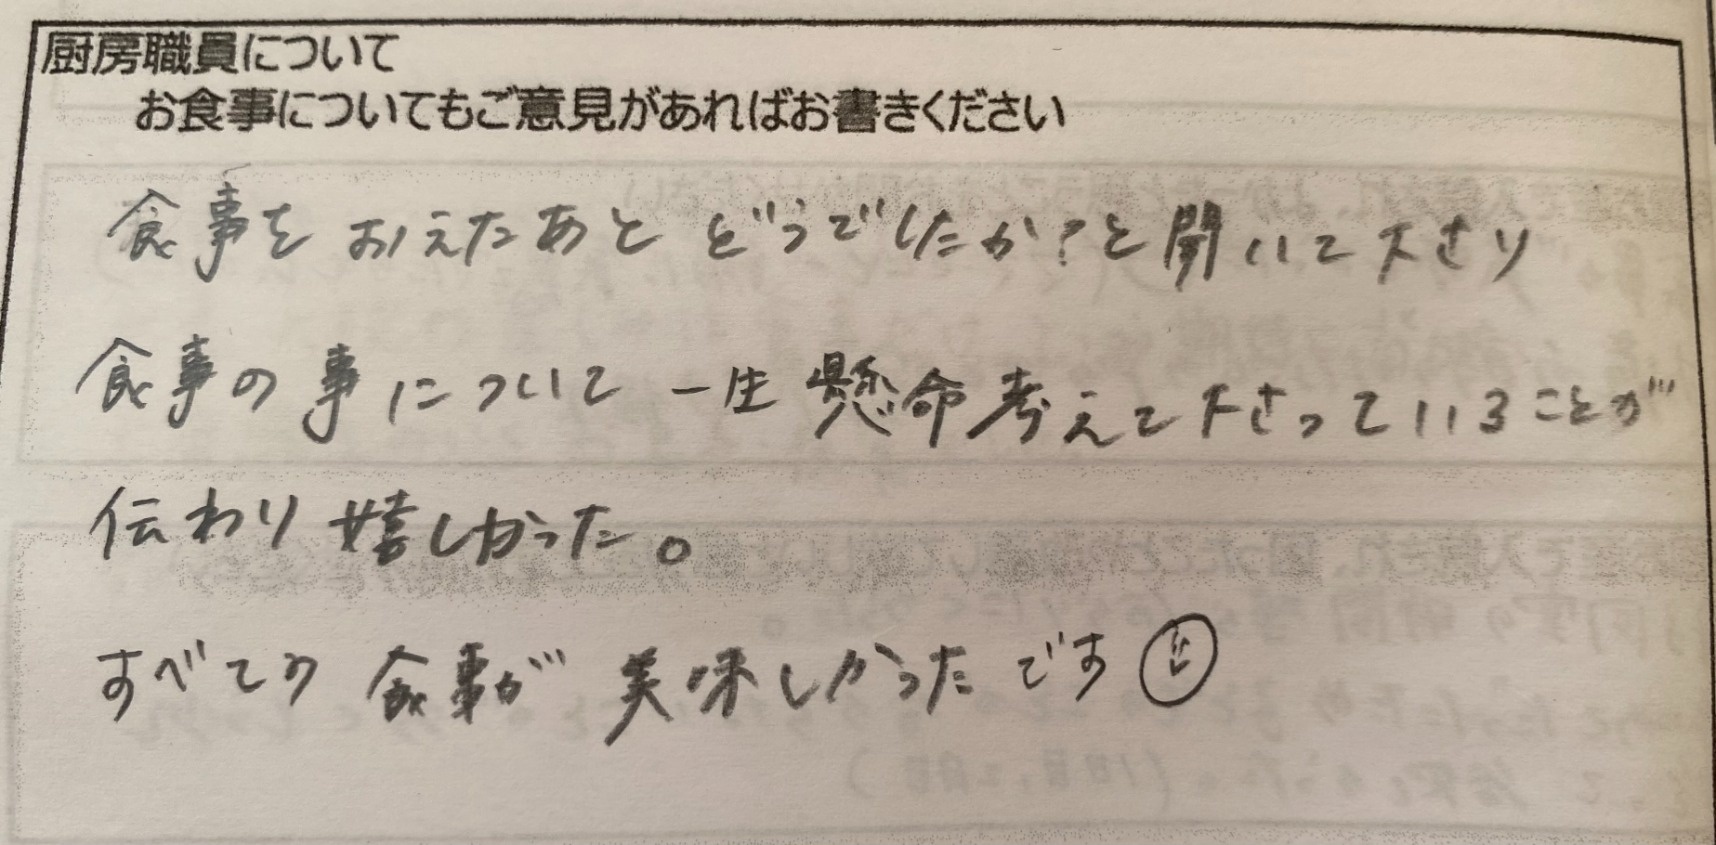 厨房職員について
お食事についてもご意見があればお書きください
食事を おえたあと どうでしたか?と聞いて下さり
食事の事について 一生懸命考えて下さっていることが
伝わり 嬉しかった。
すべての 食事が 美味しかったです